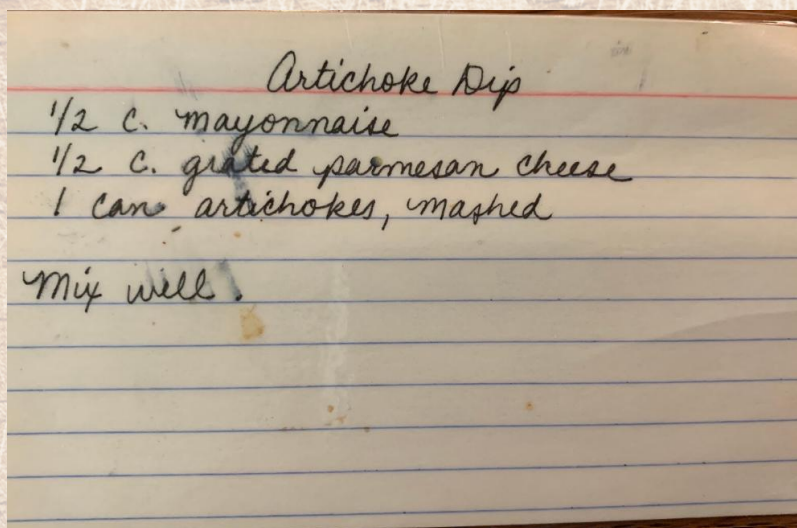 Artichoke Dip
1/2 c. mayonnaise
1/2 c. grated parmesan cheese
1 can artichokes, mashed
Mix well.